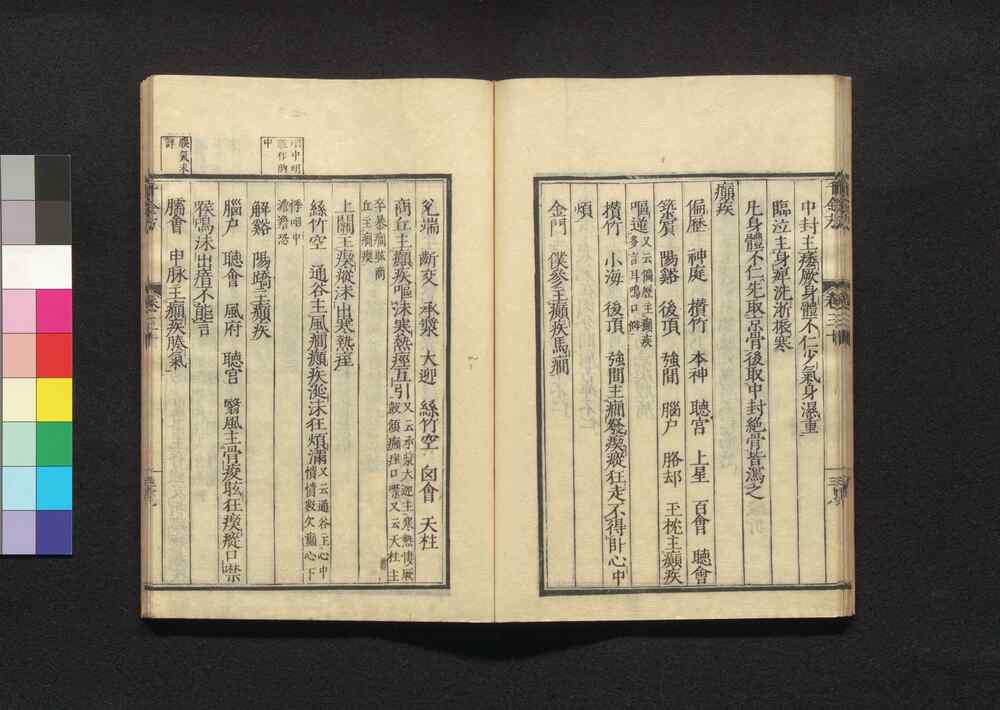 中封主痿厥身體不仁少氣身濕重
臨泣主身痹洗淅振寒
凡身體不仁先取京骨後取中封絕骨皆瀉之
癲疾
偏歷 神庭 攢竹 本神 聽宮 上星 百會 聽會
築賓 陽谿 後頂 強間 腦戶 胳却 玉枕主癲疾
嘔逆又云偏歷主癲疾
多言耳鳴口僻
攢竹 小海 後頂 強間主癇發瘈瘲狂走不得卧心中
煩
金門 僕參主癲疾馬癇
兌端 齗交 承漿 大迎 絲竹空 囟會 天柱
商丘主癲疾嘔沫寒熱痙互引又云承漿大迎主寒熱悽厥
鼓頷癲痙口噤又云天柱主
卒暴癇眩商
丘主癇瘈
上關主瘈瘲沫出寒熱痙
絲竹空 通谷主風癇癲疾涎沫狂煩滿又云通谷主心中
憒憒數欠癲心下
悸咽中
澹澹恐
解谿 陽蹻主癲疾
腦戶 聽會 風府 聽宮 翳風主骨痠眩狂瘈瘲口噤
喉鳴沫出瘖不能言
臑會 申脉主癲疾腠氣
腠氣未
詳